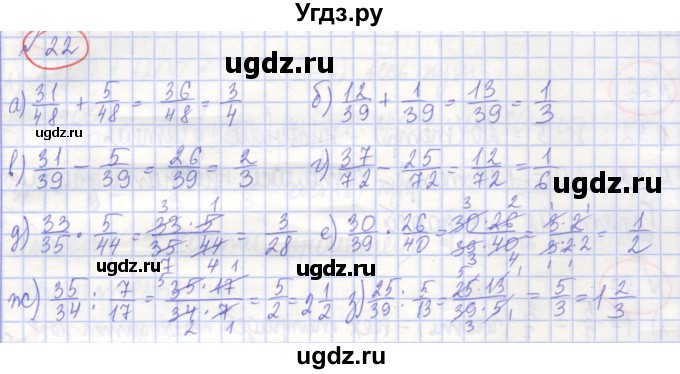 Угдз.ру
№ 22
ugdz.ru ugdz.ru
а) 31/48 + 5/48 = 36/48 = 3/4 б) 12/39 + 1/39 = 13/39 = 1/3
ugdz.ru
в) 31/39 - 5/39 = 26/39 = 2/3 г) 37/72 - 25/72 = 12/72 = 1/6
ugdz.ru ugdz.ru
д) 33/35 · 5/44 = 33·5/35·44 = 3/28 е) 30/39 · 26/40 = 30·26/39·40 = = 1/2
ugdz.ru ugdz.ru
ж) 35/34 : 7/17 = 35·17/34·7 = 5/2 = 2 1/2 з) 25/39 : 5/13 = 25·13/39·5 = 5/3 = 1 2/3
ugdz.ru
ugdz.ru